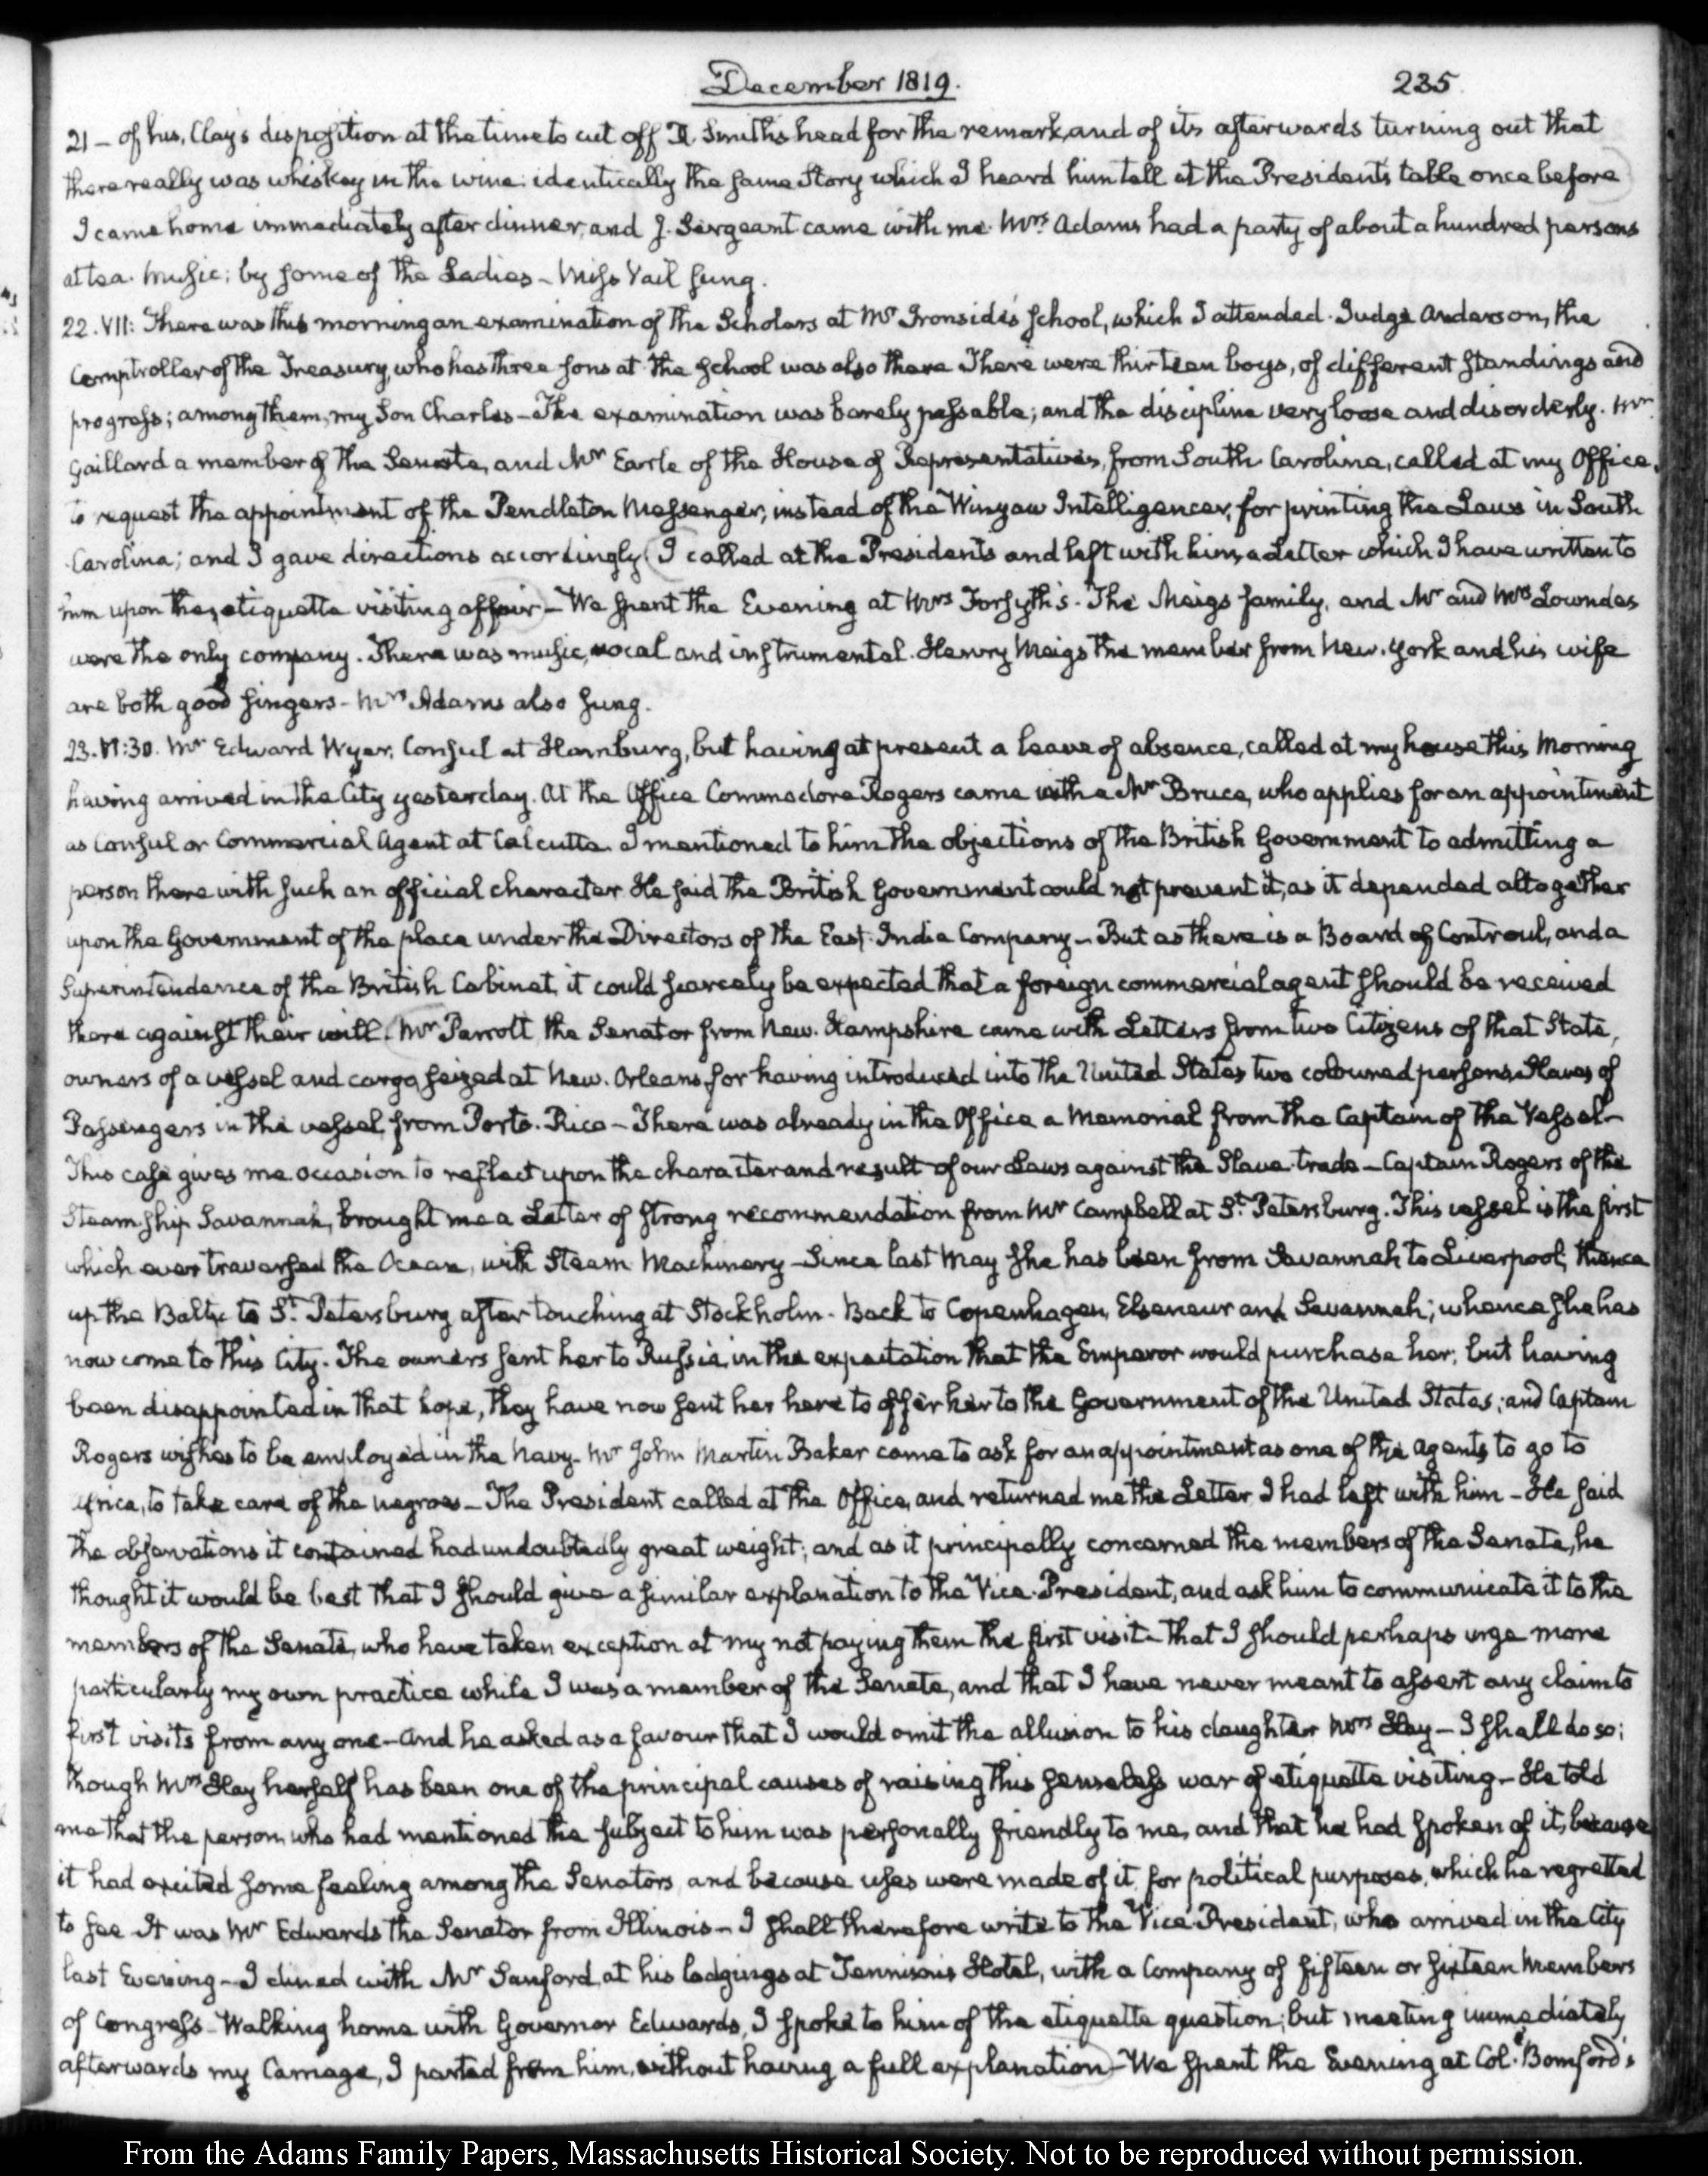 December 1819.
235.
21 — of his, Clay's disposition at the time to cut off D. Smith's head for the remark, and of its afterwards turning out that
there really was whiskey in the wine: identically the same Story which I heard him tell at the President's table once before
I came home immediately after dinner, and J. Sergeant came with me. Mrs. Adams had a party of about a hundred persons
at tea. Music; by some of the Ladies — Miss Vail sung.
22. VII: There was this morning an examination of the Scholars at Mr Ironside's school, which I attended. Judge Anderson, the
Comptroller of the Treasury, who has three sons at the school was also there There were thirteen boys, of different standings and
progress; among them, my Son Charles — The examination was barely passable; and the discipline very loose and disorderly. Mr
Gaillard a member of the Senate, and Mr Earle of the House of Representatives, from South Carolina, called at my Office,
to request the appointment of the Pendleton Messenger, instead of the Winyaw Intelligencer, for printing the Laws in South
Carolina; and I gave directions accordingly (I called at the President's and left with him, a Letter which I have written to
him upon the etiquette visiting affair) — We spent the Evening at Mrs Forsyth's. The Meigs family, and Mr and Mrs Lowndes
were the only company. There was music, vocal and instrumental. Henry Meigs the member from New. York and his wife
are both good singers — Mrs Adams also sung.
23. VI:30. Mr Edward Wyer, Consul at Hamburg, but having at present a leave of absence, called at my house this Morning
having arrived in the City yesterday. At the Office Commodore Rogers came with a Mr Bruce, who applies for an appointment
as Consul or Commercial Agent at Calcutta. I mentioned to him the objections of the British Government to admitting a
person there with such an official character. He said the British Government could not prevent it, as it depended altogether
upon the Government of the place under the Directors of the East. India Company — But as there is a Board of Controul, and a
Superintendance of the British Cabinet, it could scarcely be expected that a foreign commercial agent should be received
there against their will. (Mr Parrott the Senator from New. Hampshire came with Letters from two Citizens of that State,
owners of a vessel and cargo, seized at New. Orleans, for having introduced into the United States two coloured persons, Slaves of
Passengers in the vessel, from Porto. Rico — There was already in the Office a Memorial from the Captain of the Vessel —
This case gives me occasion to reflect upon the character and result of our Laws against the Slave trade — Captain Rogers of the
Steam Ship Savannah, brought me a Letter of strong recommendation from Mr Campbell at St. Petersburg. This vessel is the first
which ever traversed the Ocean, with Steam Machinery — Since last May she has been from Savannah to Liverpool, thence
up the Baltic to St. Petersburg after touching at Stockholm — Back to Copenhagen, Elseneur and Savannah; whence she has
now come to this City. The owners sent her to Russia, in the expectation that the Emperor would purchase her; but having
been disappointed in that hope, they have now sent her here to offer her to the Government of the United States; and Captain
Rogers wishes to be employed in the Navy — Mr John Martin Baker came to ask for an appointment as one of the Agents to go to
Africa, to take care of the negroes — The President called at the Office, and returned me the Letter I had left with him — He said
the observations it contained had undoubtedly great weight; and as it principally concerned the members of the Senate, he
thought it would be best that I should give a similar explanation to the Vice. President, and ask him to communicate it to the
members of the Senate, who have taken exception at my not paying them the first visit — That I should perhaps urge more
particularly my own practice while I was a member of the Senate, and that I have never meant to assert any claim to
first visits from any one — And he asked as a favour that I would omit the allusion to his daughter Mrs Hay — I shall do so;
though Mrs Hay herself has been one of the principal causes of raising this senseless war of etiquette visiting — He told
me that the person who had mentioned the subject to him was personally friendly to me, and that he had spoken of it, because
it had excited some feeling among the Senators, and because uses were made of it, for political purposes, which he regretted
to see It was Mr Edwards the Senator from Illinois — I shall therefore write to the Vice. President, who arrived in the City
last Evening — I dined with Mr Sanford, at his lodgings at Tennison's Hotel, with a Company of fifteen or sixteen Members
of Congress — Walking home with Governor Edwards, I spoke to him of the etiquette question; but meeting immediately
afterwards my Carriage, I parted from him, without having a full explanation) — We spent the Evening at Col. Bomford's
From the Adams Family Papers, Massachusetts Historical Society. Not to be reproduced without permission.